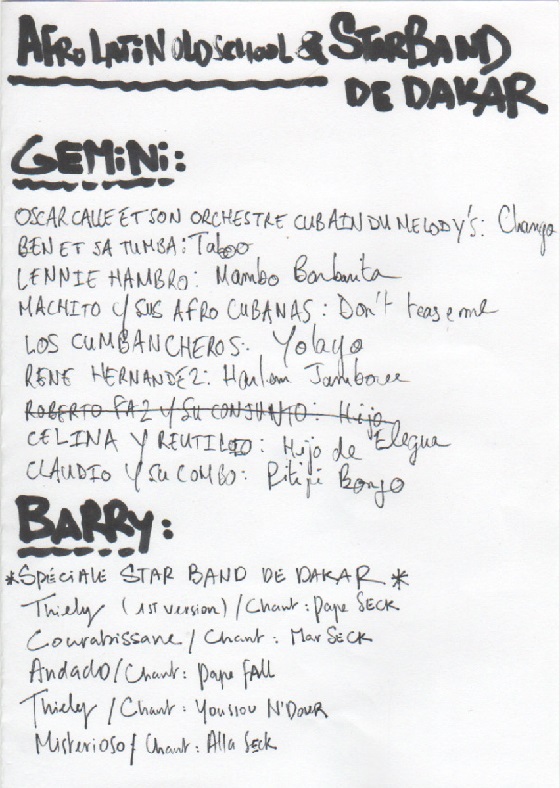 AFRO LATIN OLD SCHOOL & STAR BAND
DE DAKAR
GEMINI:
OSCAR CALLE ET SON ORCHESTRE CUBAIN DU MELODY'S: Chango
BEN ET SA TUMBA: Taboo
LENNIE HAMBRO: Mambo
MACHITO Y SUS AFRO CUBANAS: Don't tease me
LOS CUMBANCHEROS: Yolayo
RENE HERNANDEZ: Harlem Jamboree
ROBERTO FAZ Y SU CONJUNTO: Hijo
CELINA Y REUTILIO: Hijo de Elegua
CLAUDIO Y SU COMBO: Pitipi Bongo
BARRY:
*SPÉCIALE STAR BAND DE DAKAR*
Thiely (1ST version) / Chant: Pape SECK
/ Chant: Mar SECK
Andado / Chant: Pape FALL
Thiely / Chant: Youssou N'DOUR
Misterioso / Chant: Alla SECK